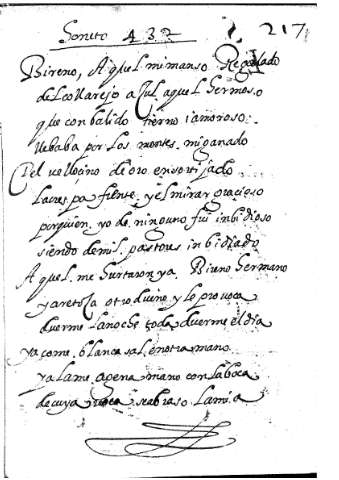 Soneto 437
217
Bireno, Aquel mi manso Regalado
del collarejo açul, aquel hermoso
que con balido tierno i amoroso
llebaba por los montes mi ganado
del vellocino de oro ensortijado
la crespa frente, y el mirar gracioso
por quien yo de ninguno fui inbidioso
siendo de mil pastores inbidiado
Aquel me hurtaron ya Bireno hermano
ya retoça otro dueño y le provoca
duerme la noche toda duerme el dia
ya come blanca sal en otra mano
ya lame agena mano con la boca
de cuya se abraso la mia